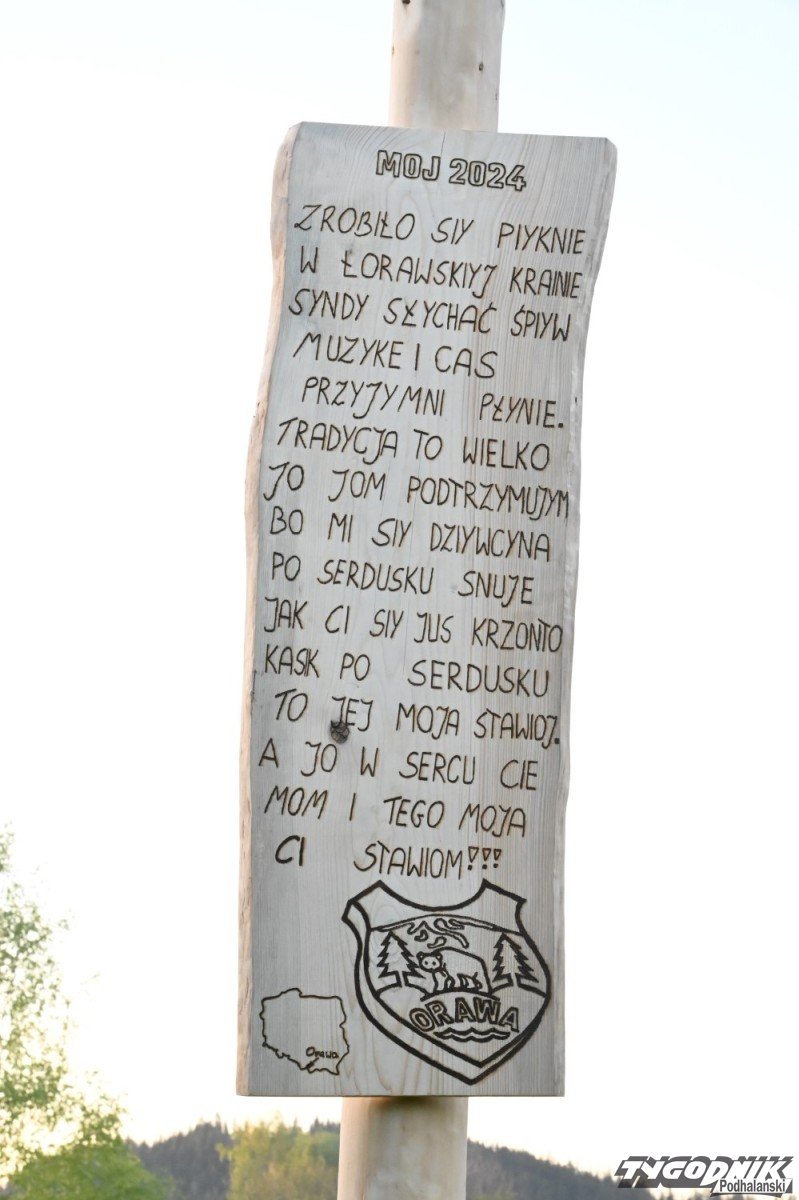 MOJ 2024
ZROBIŁO SIY PIYKNIE
W ŁORAWSKIYJ KRAINIE
SYNDY SŁYCHAĆ ŚPIYW
MUZYKE I CAS
PRZYJYMNI PŁYNIE.
TRADYCJA TO WIELKO
JO JOM PODTRZYMUJYM
BO MI SIY DZIYWCYNA
PO SERDUSKU SNUJE
JAK CI SIY JUS KRZONTO
KASIK PO SERDUSKU
TO JEJ MOJA STAWIOJ.
A JO W SERCU CIE
MOM I TEGO MOJA
CI STAWIOM!!!
ORAWA
Orawa
TYGODNIK
Podhalański